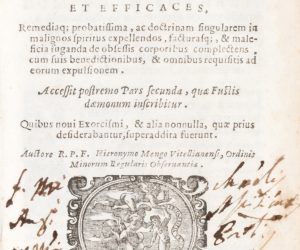 ET EFFICACES,
Remediaq; probatissima, ac doctrinam singularem in
malignos spiritus expellendos, facturasq;, & male-
ficia fuganda de obsessis corporibus complectens,
cum suis benedictionibus, & omnibus requisitis ad
eorum expulsionem.
Accessit postremò Pars secunda, quæ Fustis
dæmonum inscribitur.
Quibus noui Exorcismi, & alia nonnulla, quæ prius
desiderabantur, superaddita fuerunt.
Auctore R. P. F. Hieronymo Mengo Vitellianensi, Ordinis
Minorum Regularis Obseruantiæ.